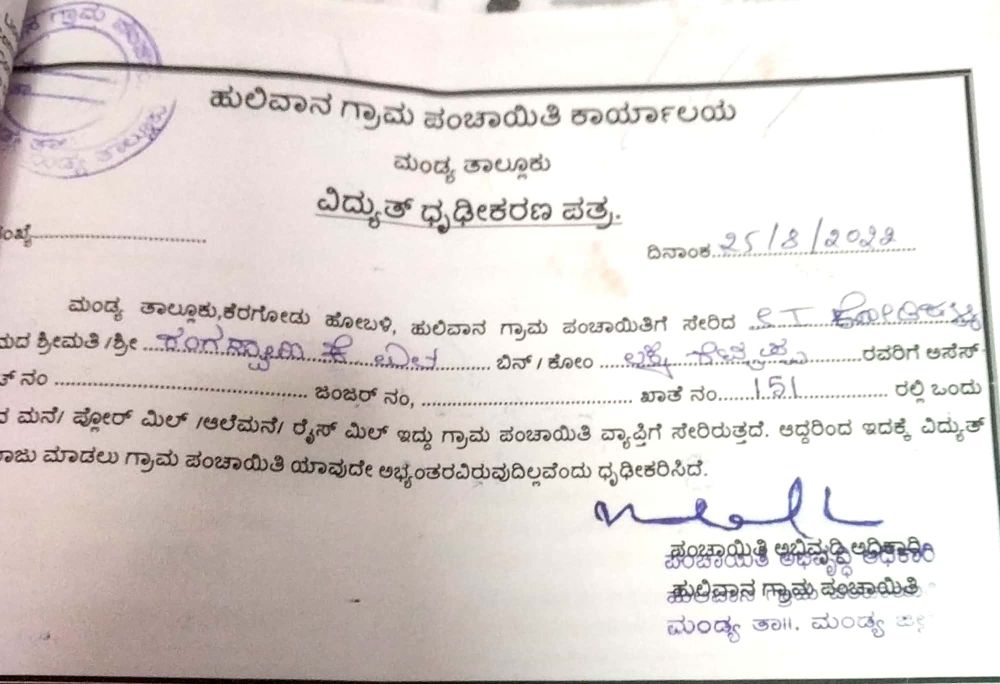 ಹುಲಿವಾನ ಗ್ರಾಮ ಪಂಚಾಯಿತಿ ಕಾರ್ಯಾಲಯ
ಮಂಡ್ಯ ತಾಲ್ಲೂಕು
ವಿದ್ಯುತ್ ಧೃಢೀಕರಣ ಪತ್ರ.
ದಿನಾಂಕ 25/8/2022
ಮಂಡ್ಯ ತಾಲ್ಲೂಕು,ಕೆರಗೋಡು ಹೋಬಳಿ, ಹುಲಿವಾನ ಗ್ರಾಮ ಪಂಚಾಯಿತಿಗೆ ಸೇರಿದ
ಶ್ರೀಮತಿ /ಶ್ರೀ ಬಿನ್ / ಕೋಂ ರವರಿಗೆ ಅಸೆಸ್
ನಂ ಜಂಜರ್ ನಂ, ಖಾತೆ ನಂ 151 ರಲ್ಲಿ ಒಂದು
ಮನೆ/ ಪ್ಲೋರ್ ಮಿಲ್ /ಆಲೆಮನೆ/ ರೈಸ್ ಮಿಲ್ ಇದ್ದು ಗ್ರಾಮ ಪಂಚಾಯಿತಿ ವ್ಯಾಪ್ತಿಗೆ ಸೇರಿರುತ್ತದೆ. ಆದ್ದರಿಂದ ಇದಕ್ಕೆ ವಿದ್ಯುತ್
ಮಾಡಲು ಗ್ರಾಮ ಪಂಚಾಯಿತಿ ಯಾವುದೇ ಅಭ್ಯಂತರವಿರುವುದಿಲ್ಲವೆಂದು ಧೃಢೀಕರಿಸಿದೆ.
ಪಂಚಾಯಿತಿ ಅಭಿವೃದ್ಧಿ ಅಧಿಕಾರಿ
ಹುಲಿವಾನ ಗ್ರಾಮ ಪಂಚಾಯಿತಿ
ಮಂಡ್ಯ ತಾ||. ಮಂಡ್ಯ